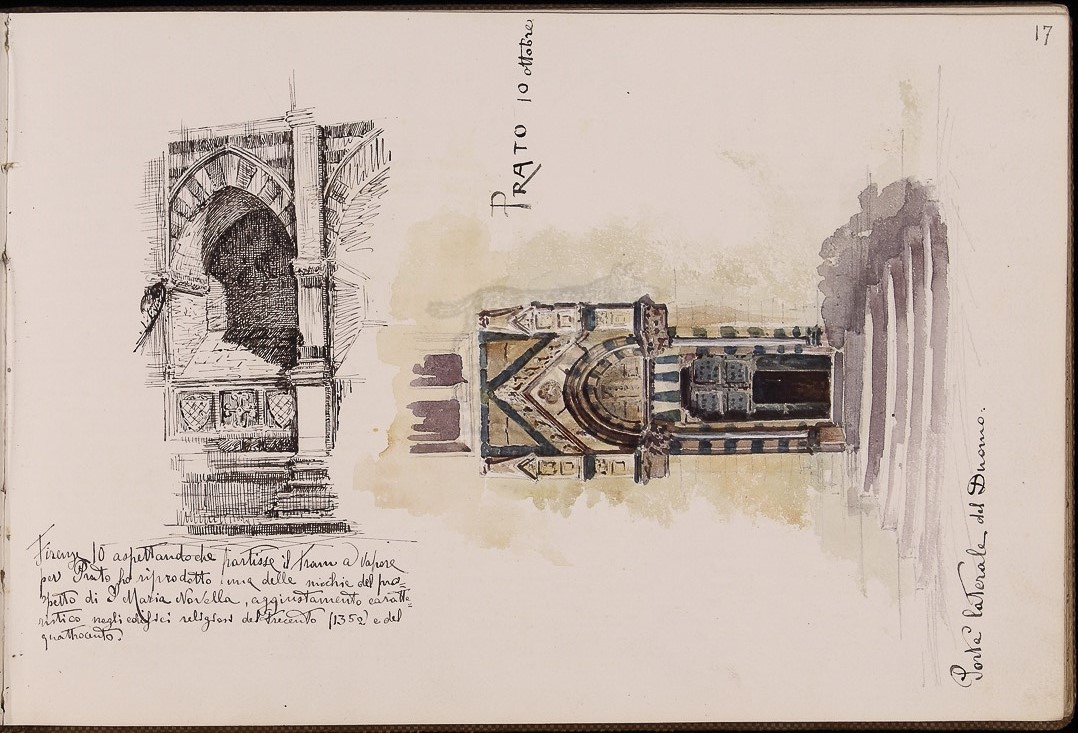 17
PRATO 10 ottobre
Firenze 10 aspettando che partisse il tram a vapore
per Prato ho riprodotto una delle nicchie del pro=
spetto di S. Maria Novella, aggiustamento caratte=
ristico negli edifici religiosi del trecento (1352) e del
quattrocento.
Porta laterale del Duomo.